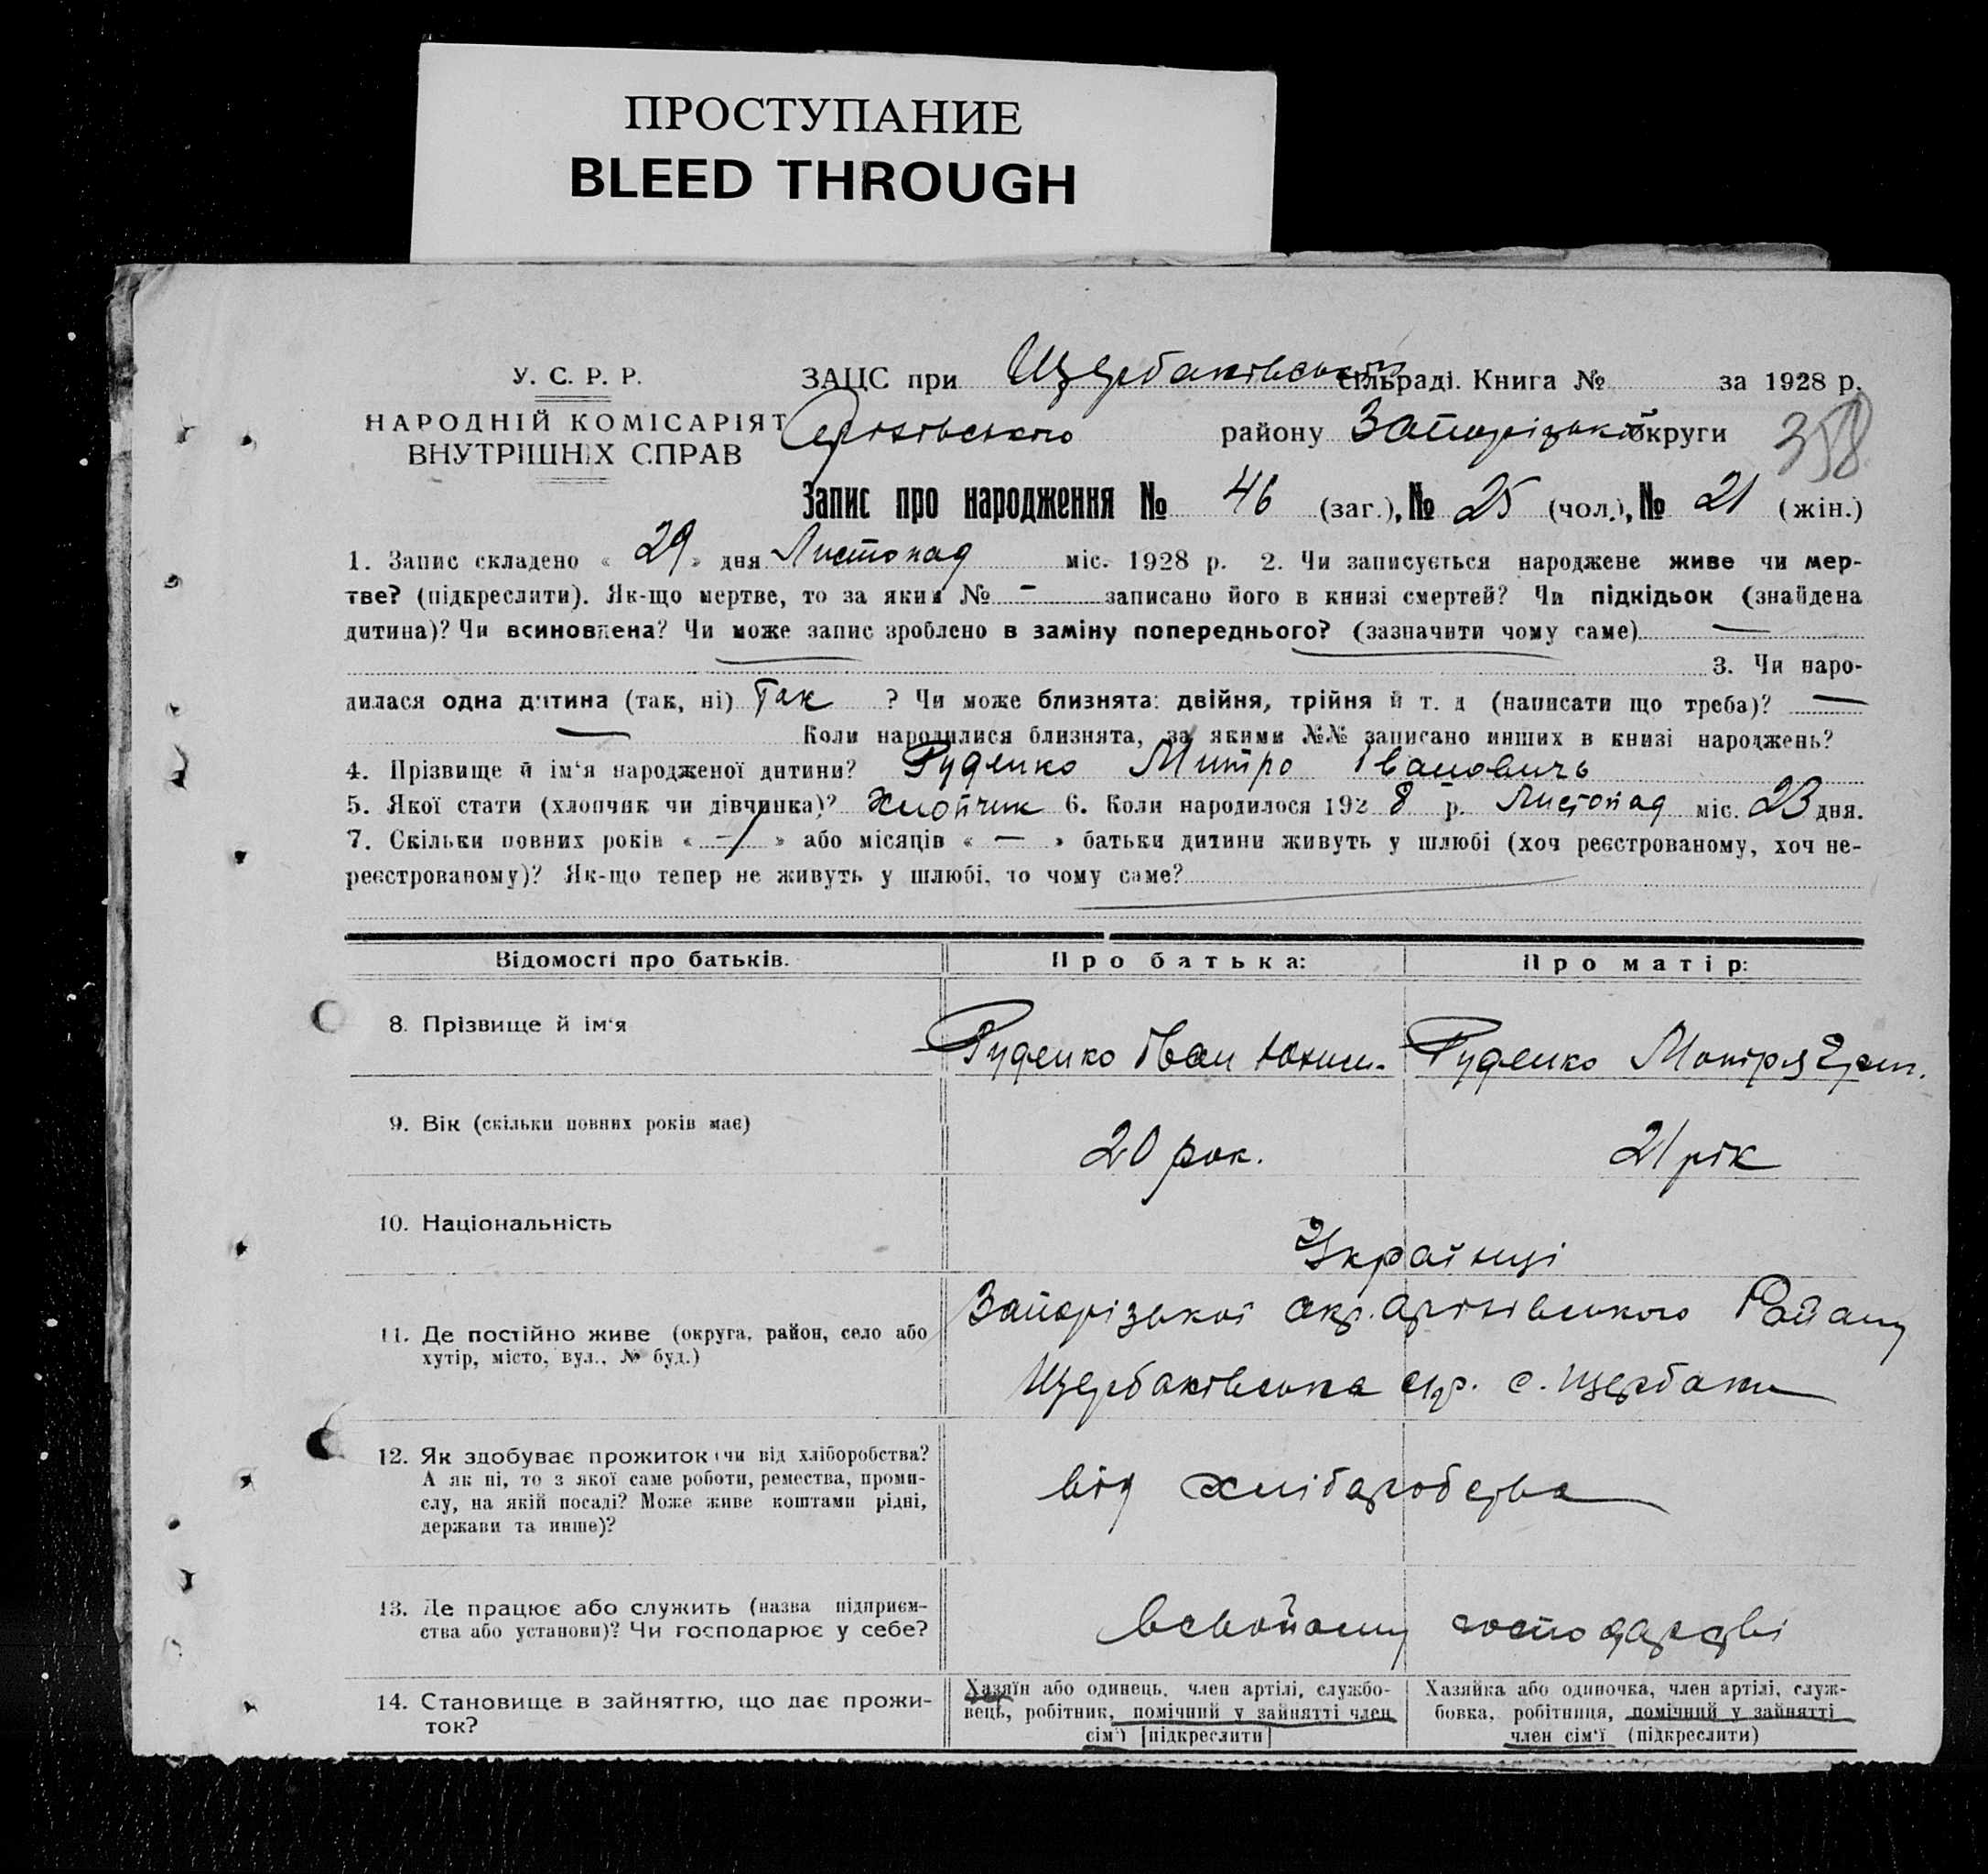 ПРОСТУПАНИЕ
BLEED THROUGH
У. С. Р. Р.
НАРОДНІЙ КОМІСАРІЯТ
ВНУТРІШНІХ СПРАВ
ЗАЦС при Щербаківській сільраді. Книга № за 1928 р.
Оріхівського району Запорізької округи
358
Запис про народження № 46 (заг.), № 25 (чол.), № 21 (жін.)
1. Запис складено « 29 » дня Листопад міс. 1928 р. 2. Чи записується народжене живе чи мер-
тве? (підкреслити). Як-що мертве, то за яким № — записано його в книзі смертей? Чи підкідьок (знайдена
дитина)? Чи всиновлена? Чи може запис зроблено в заміну попереднього? (зазначити чому саме) —
3. Чи наро-
дилася одна дитина (так, ні) Так ? Чи може близнята: двійня, трійня й т. д (написати що треба)? —
— Коли народилися близнята, за якими №№ записано инших в книзі народжень?
4. Прізвище й ім'я народженої дитини? Руденко Митро Івановичь
5. Якої стати (хлопчик чи дівчинка)? Хлопчик 6. Коли народилося 1928 р. Листопад міс. 23 дня.
7. Скільки повних років « — » або місяців « — » батьки дитини живуть у шлюбі (хоч реєстрованому, хоч не-
реєстрованому)? Як-що тепер не живуть у шлюбі, то чому саме?
Відомості про батьків. Про батька: Про матір:
8. Прізвище й ім'я Руденко Іван Юхим. Руденко Мотря
9. Вік (скільки повних років має) 20 рок. 21 рік
10. Національність Українці
11. Де постійно живе (округа, район, село або
хутір, місто, вул., № буд.)
Запорізької окр. Оріхівського Району
Щербаківська с. Щербаки
12. Як здобуває прожиток (чи від хліборобства?
А як ні, то з якої саме роботи, ремества, проми-
слу, на якій посаді? Може живе коштами рідні,
держави та инше)?
від хліборобства
13. Де працює або служить (назва підприєм-
ства або установи)? Чи господарює у себе?
всвойому господарстві
14. Становище в зайняттю, що дає прожи-
ток?
Хазяїн або одинець, член артілі, службо-
вець, робітник, помічний у зайнятті член
сім'ї [підкреслити]
Хазяйка або одиночка, член артілі, служ-
бовка, робітниця, помічний у зайнятті
член сім'ї (підкреслити)